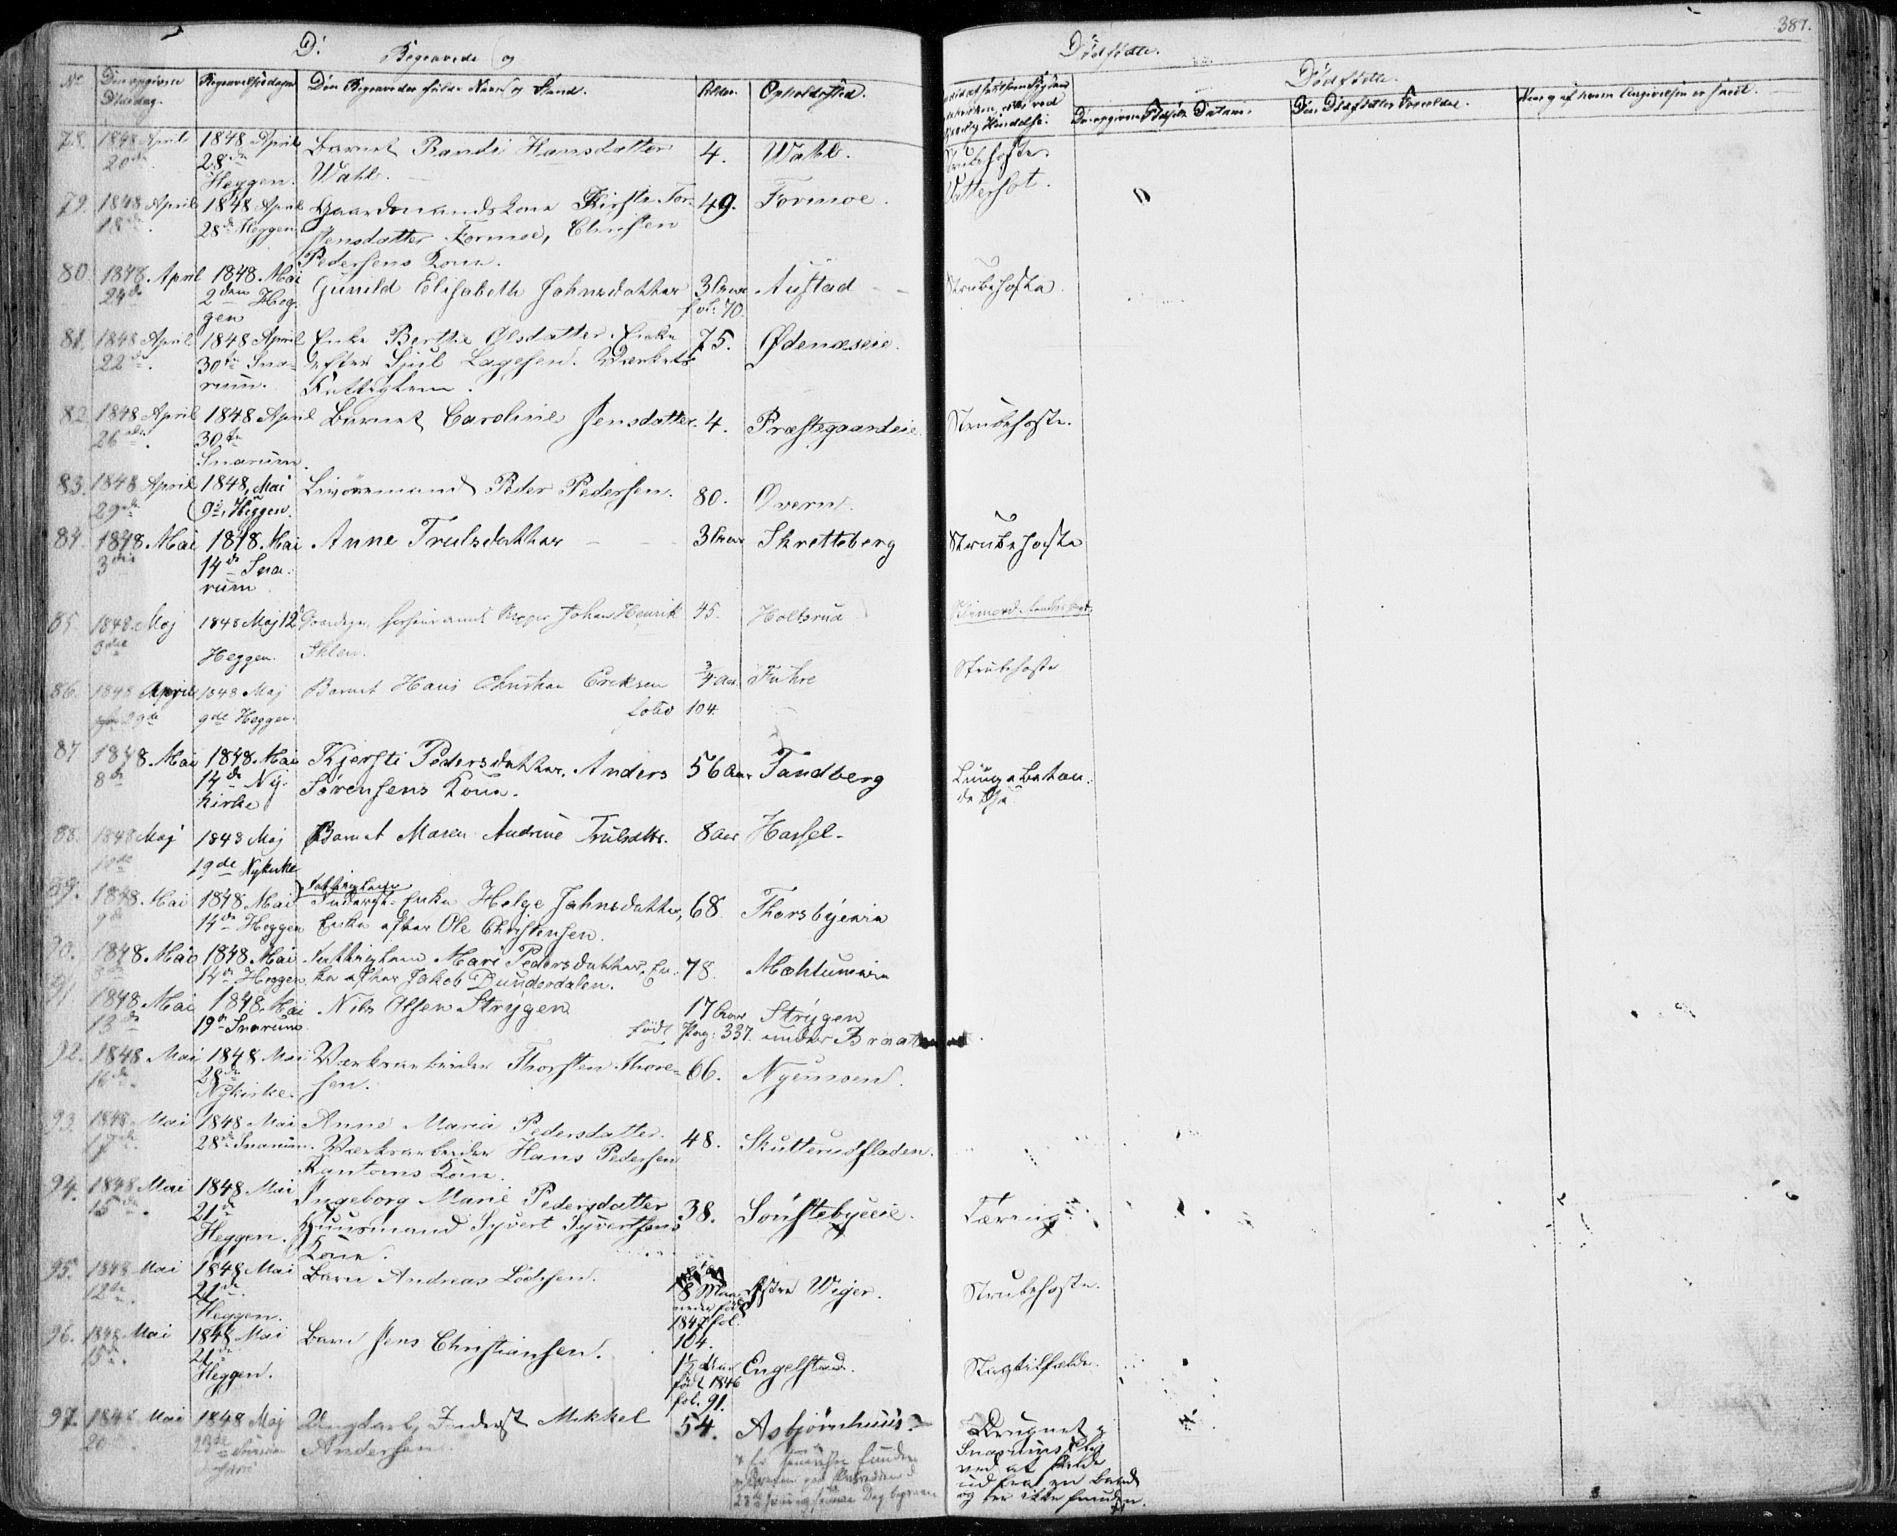 387.
D:
Begravede og
Dødfødte.
No
Den opgivne Dødsdag.
Begravelsesdagen
Den Begravedes fulde Navn og Stand.
Alder.
Opholdssted.
Dødfødte.
Den opgivne Fødsels Datum.
Den Dødfødtes Forældre.
78. 1848 April 20de 1848 April 28de Heggen. Barnet Randi Hansdatter Wahl. 4. Wahl. Strubehoste.
79. 1848 April 18de 1848 April 28de Heggen. Gaardmandskone Kirsti Torstensdatter Formoe, Christen Pedersens Kone. 49. Formoe. Vattersot.
80. 1848 April 24de 1848 Mai 2den Heggen Gunild Elisabeth Jahnsdatter 3 Aar fol: 70. Austad Strubehoste.
81. 1848 April 22de. 1848 April 30te Snarum. Enke Berthe Olsdatter. Enke efter Sjul Lagesen. Værkets Fattiglem. 75. Ødenæseie.
82. 1848 April 26de. 1848 April 30te Snarum. Barnet Caroline Jensdatter. 4. Præstegaardeie. Strubehoste.
83. 1848 April 29de 1848, Mai 9de Heggen. Livøremand Peder Pedersen. 80. Overn.
84. 1848 Mai 3die 1848 Mai 14de Snarum Anne Trulsdatter 3 Aar Skretteberg Strubehoste
85. 1848 Maj 3die 1848 Maj 12 Heggen. Johan Henrik 45. Holtsrud
86. 1848 April 29de 1848 Maj 9de Heggen. Barnet Hans Christian Eriksen folio 104. 3/4 Aar Fuhre Strubehoste
87 1848 Mai 8de 1848 Mai 14de Nykirke Kjersti Pedersdatter, Anders Sørensens Kone. 56 Aar Tandberg Lungebetændelse.
88. 1848 Maj 10de 1848 Maj 19de Nykirke Barnet Maren Andrine Trulsdtr. 8 Aar Hassel.
89. 1848 Mai 9de 1848 Mai 14de Heggen Fattiglem Inderst-Enke Helge Jahnsdatter, Enke efter Ole Christensen. 68 Thorsbyeeie
90. 1848 Mai 8de 1848 Mai 14de Heggen Fattiglem Mari Pedersdatter, Enke efter Jakob Dunderdalen. 78. Mæhlumeie
91 1848 Mai 13de 1848 Mai 19de Snarum Nils Olsen Strygen 17 Aar Strygen
født Pag: 337. under Braaten
92. 1848 Mai 16de. 1848 Mai 28de Nykirke. Værksarbeider Thorsten Thoresen. 66. Nyemoen.
93. 1848 Mai 17de. 1848 Mai 28de Snarum. Anne Maria Pedersdatter. Værksarbeider Hans Pedersen Rantons Kone. 48. Skutterudfladen.
94. 1848 Mai 15de. 1848 Mai 21de Heggen. Ingeborg Marie Pedersdatter Huusmand Syvert Syvertsens Kone. 38. Sønstebyeeie. Tæring.
95. 1848 Mai 12de. 1848 Mai 21de. Heggen. Barn Andreas Lodsen. 8 Maaneder født 1847 fol. 104. Østre Wiger. Strubehoste.
96. 1848 Mai 15de. 1848 Mai 21de Heggen. Barn Jens Christiansen. 1½ Aar født 1846 fol. 91. Engelstad. Slagtilfælde.
97. 1848 Mai 20 1848 Maj 23de Ungkarl, Inderst Mikkel Andersen. 54. Asbjørnhuus. Druknet i Snarums Elv ved at falde ud fra en Baad og er ikke funden.